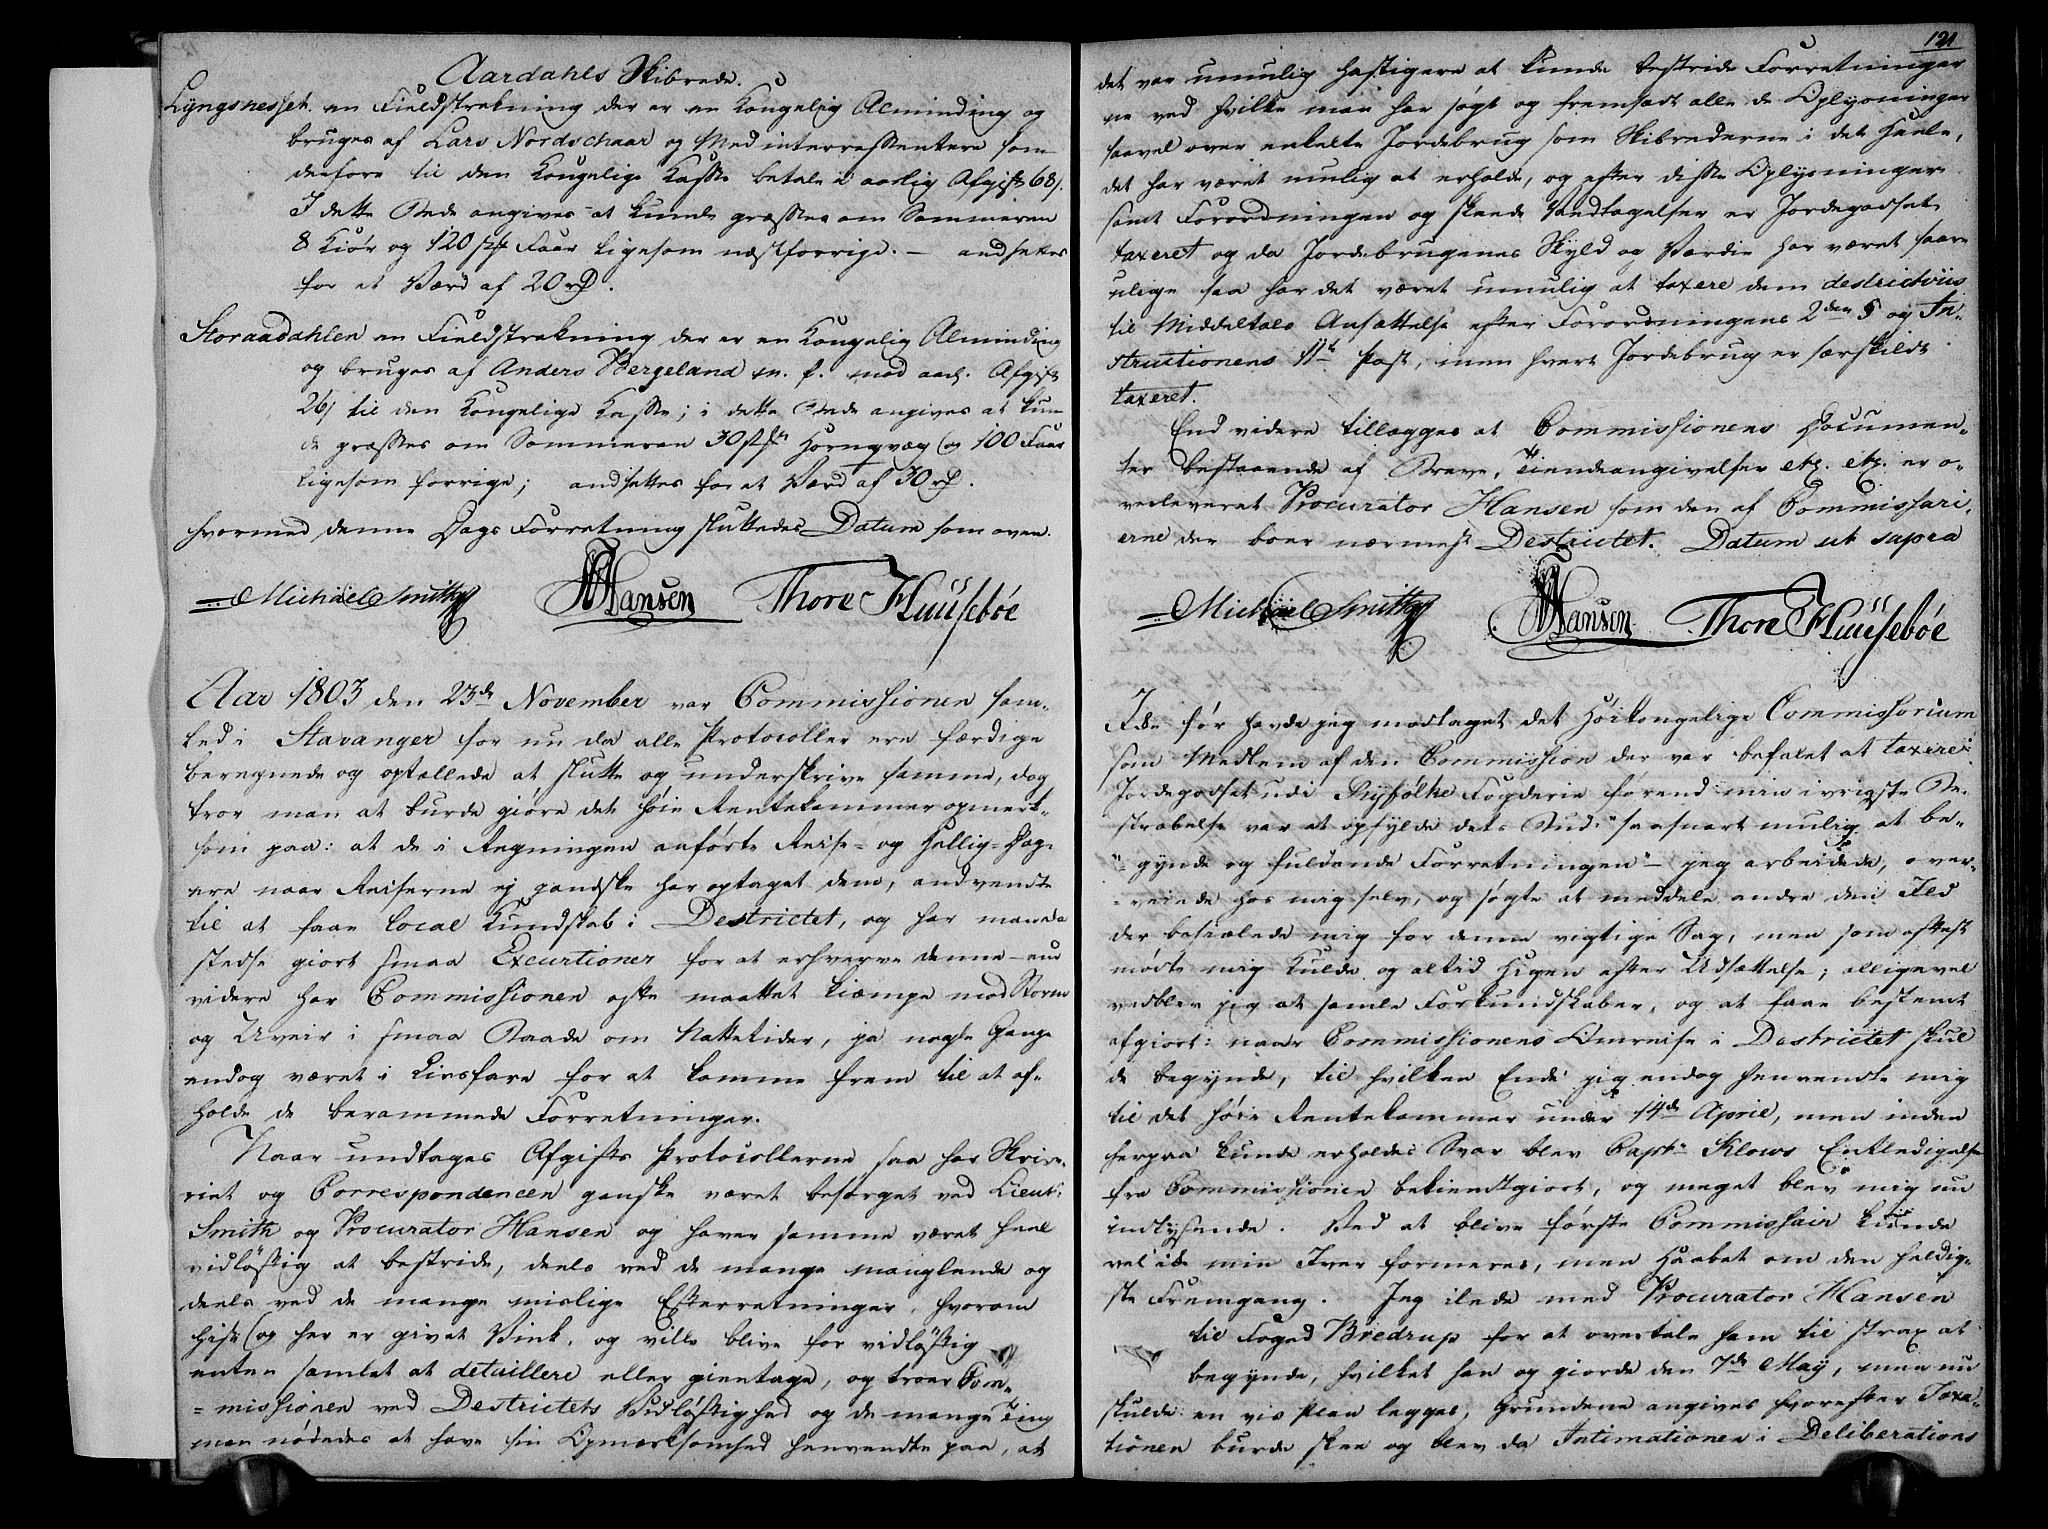 Aardahls Skibrede.
Lyngsnesset. en Fieldstrekning der er en Kongelig Alminding og
bruges af Lars Nordschaar og Med interressentere som
derfore til den Kongelige Kasse betale i aarlig Afgift 68/.
I dette Rede angives at kunde græsses om Sommeren
8 Kiør og 120 st Faar ligesom næstforrige. — andsettes
for et Værd af 20 rd.
Storaadahlen en Fieldstrekning der er en Kongelig Alminding
og bruges af Anders Bergeland m. f. mod aarl. Afgift
26/ til den Kongelige Kasse; i dette Rede angives at kun-
de græsses om Sommeren 30 st. Hornqvæg og 100 Faar
ligesom forrige; andsettes for et Værd af 30 rd.
hvormed denne Dags Forretning sluttedes Datum som oven.
Michael Smith Hansen Thore Huusebøe
Aar 1803 den 23de November var Commissionen sam-
led i Stavanger for nu da alle Protocoller ere færdige
beregnede og optællede at slutte og underskrive samme, dog
troer man at burde giøre det høie Rentekammer opmerk-
som paa: at de i Regningen anførte Reise- og Hellig-Dag-
ere naar Reiserne ej gandske har optaget dem, andvendte
til at faae local Kundskab i Destrictet, og har man da
stedse giort smaa Excurtioner for at erhverve denne — end
videre har Commissionen ofte maattet kiæmpe mod Storm
og Uveir i smaa Baade om Nattetider, ja nogle Gange
endog været i Livsfare for at komme frem til at af-
holde de berammede Forretninger.
Naar undtages Afgifts Protocollerne saa har Skrive-
riet og Correspondencen ganske været besørget ved Lieut:
Smith og Procurator Hansen og haver samme været heel
vidløftig at bestride, deels ved de mange manglende og
deels ved de mange mislige Efterretninger, hvorom
hist og her er givet Vink, og ville blive for vidløftig
enten samlet at detaillere eller gientage, og troer Com-
missionen ved Destrictets Vidløftighed og de mange Ting
man nødedes at have sin Opmærksomhed henvendte paa, at
121
det var umulig hastigere at kunde bestride Forretninger
ne ved hvilke man har søgt og fremsadt alle de Oplysninger
saavel over enkelte Jordebrug som Skibrederne i det Heele,
det har været mulig at erholde, og efter disse Oplysninger
samt Forordningen og skeede Vedtagelser er Jordegodset
taxeret og da Jordebrugenes Skyld og Værdie har været saare
ulige saa har det været umulig at taxere dem destrictviis
til Middeltals Ansættelse efter Forordningens 2den § og In-
structionens 11te Post, men hvert Jordebrug er særskildt
taxeret.
End videre tillægges at Commissionens Documen-
ter bestaaende af Breve, Tiendeangivelser etz. etz. er o-
verleveret Procurator Hansen som den af Commissari-
erne der boer nærmest Destrictet. Datum ut supra
Michael Smith Hansen Thore Huusebøe
Ike før havde jeg modtaget det Høikongelige Commissorium
som Medlem af den Commission der var befalet at taxere
Jordegodset udi Ryefølke Fogderie førend min ivrigste Be-
stræbelse var at opfylde dets Bud: "saasnart mulig at be-
"gynde og fuldende Forretningen" — jeg arbeidede, over-
veiede hos mig selv, og søgte at meddele andre den Ild
der besiælede mig for denne vigtige Sag, men som oftest
mødte mig Kulde og altid Higen efter Udsættelse; alligevel
vedblev jeg at samle Forkundskaber, og at faae bestemt
afgiort: naar Commissionens Omreise i Destrictet skul-
de begynde, til hvilken Ende jeg endog henvendte mig
til det høie Rentekammer under 14de April, men inden
herpaa kunde erholdes Svar blev Captn Klows Entledigelse
fra Commissionen bekiendtgiort, og meget blev mig nu
indlysende. Ved at blive første Commissair kunde
vel ike min Iver formeres, men Haabet om den heldig-
ste Fremgang. Jeg ilede med Procurator Hansen
til Foged Bredrup for at overtale ham til strax at
begynde, hvilket han og giorde den 7de May, men nu
skulde en vis Plan legges, Grundene angives hvorefter Taxa-
tionen burde skee og blev da Intimationen i Deliberations